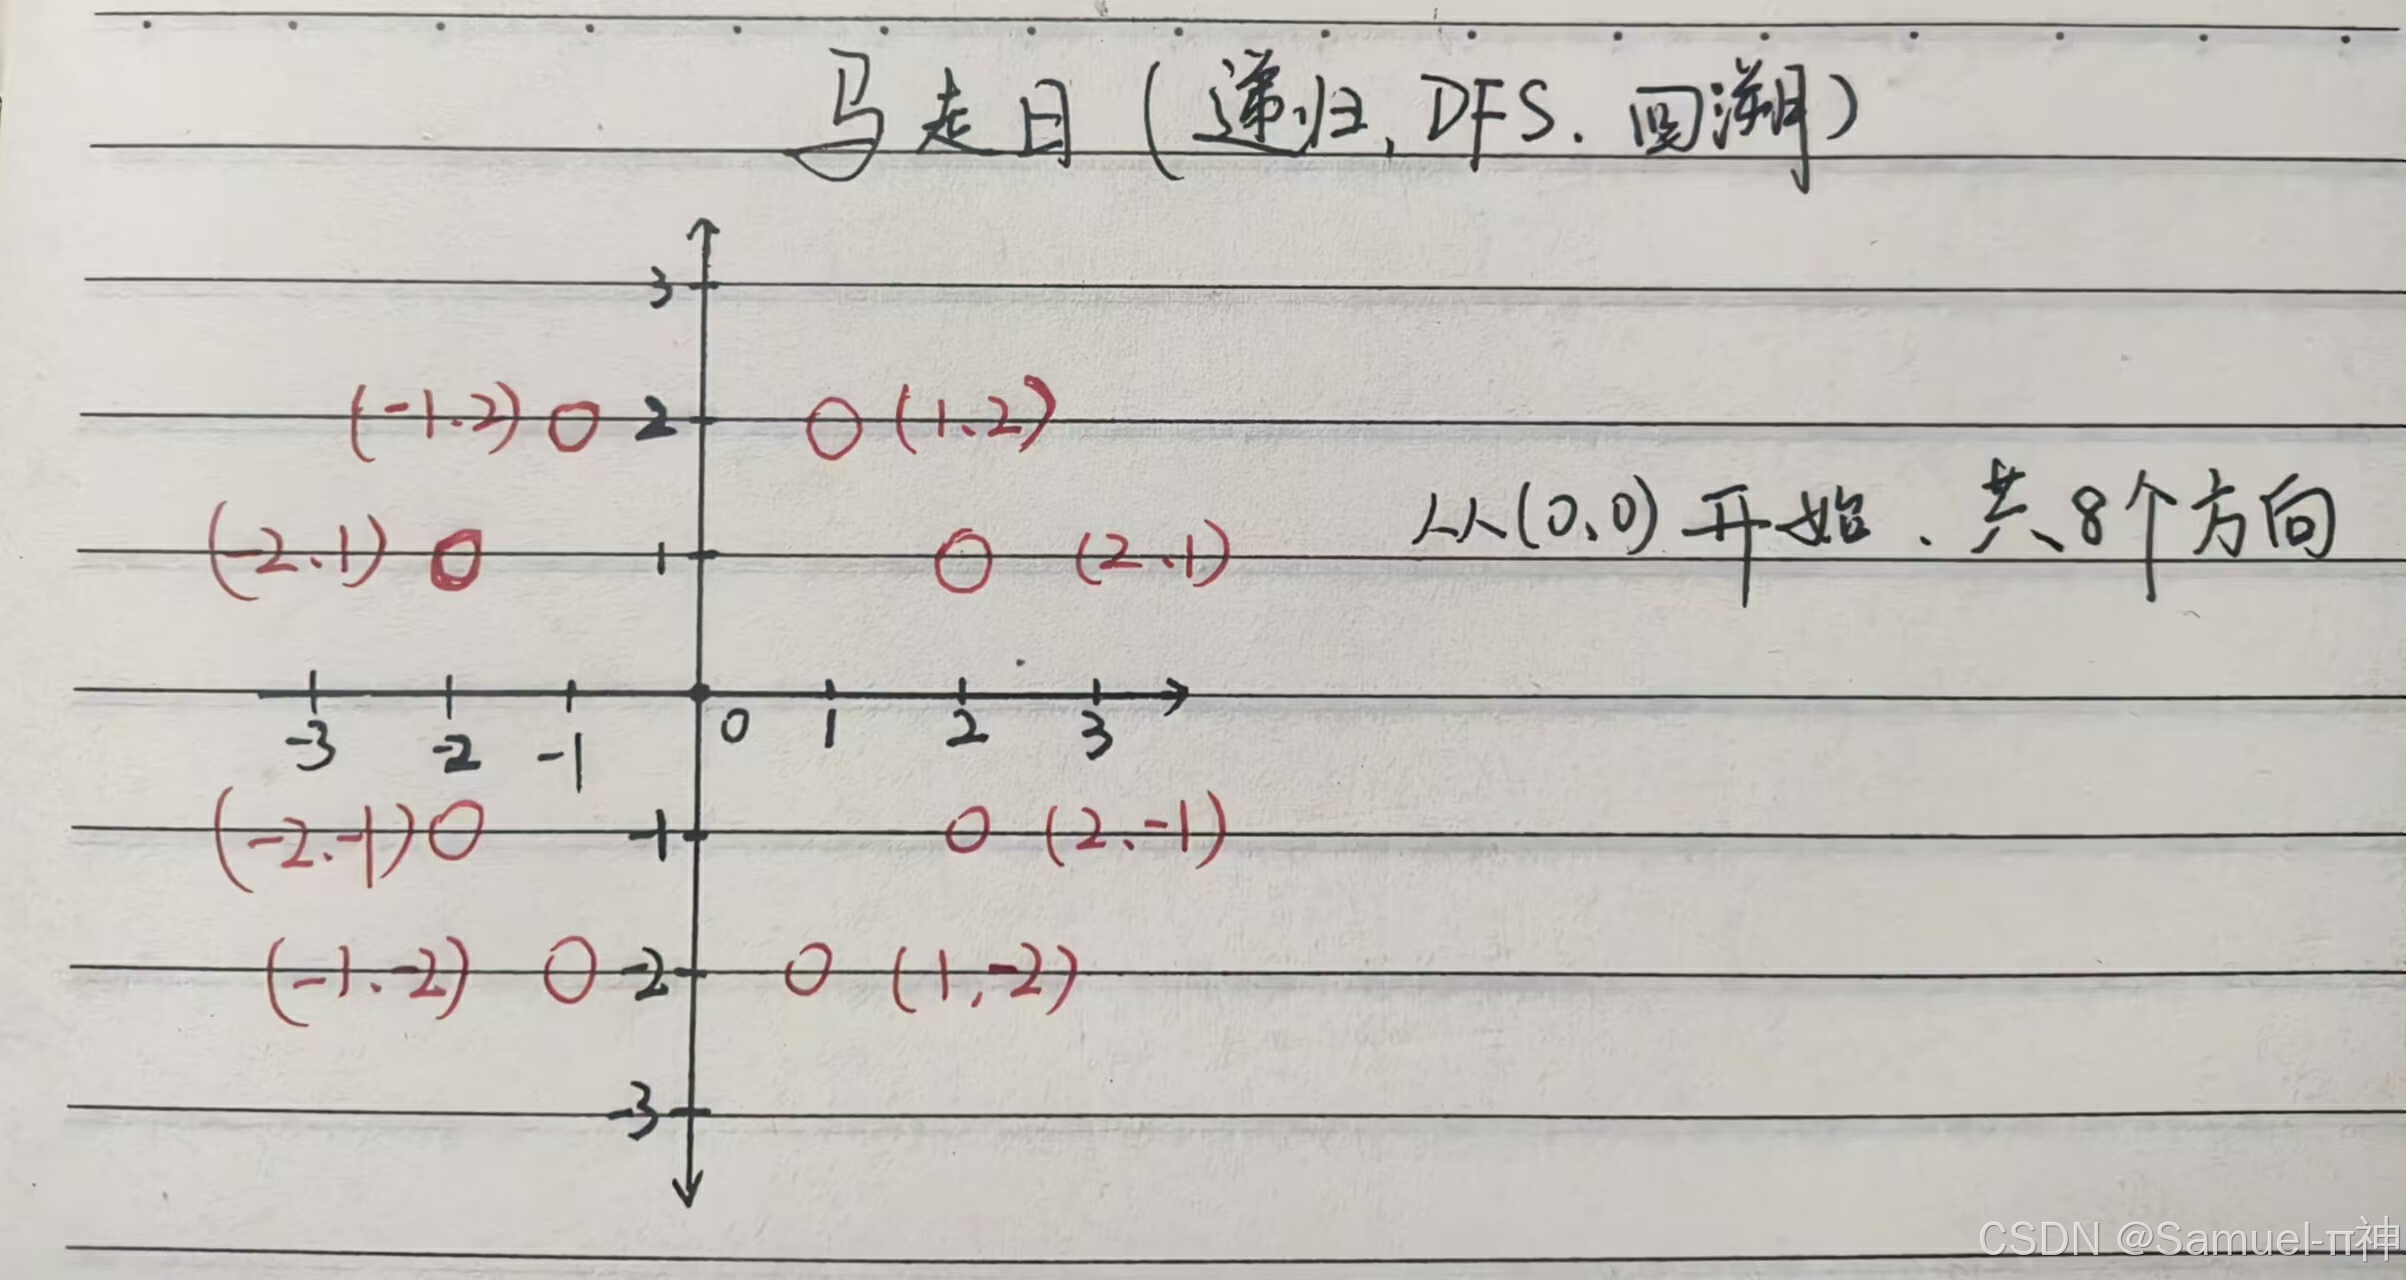 马走日(递归, DFS. 回溯)
3
(-1.2) 2 (1、2)
(-2、1) 1 (2、1)
从(0、0)开始、共8个方向
-3 -2 -1 0 1 2 3
(-2、-1) -1 (2、-1)
(-1、-2) -2 (1,-2)
-3
CSDN @Samuel-π神